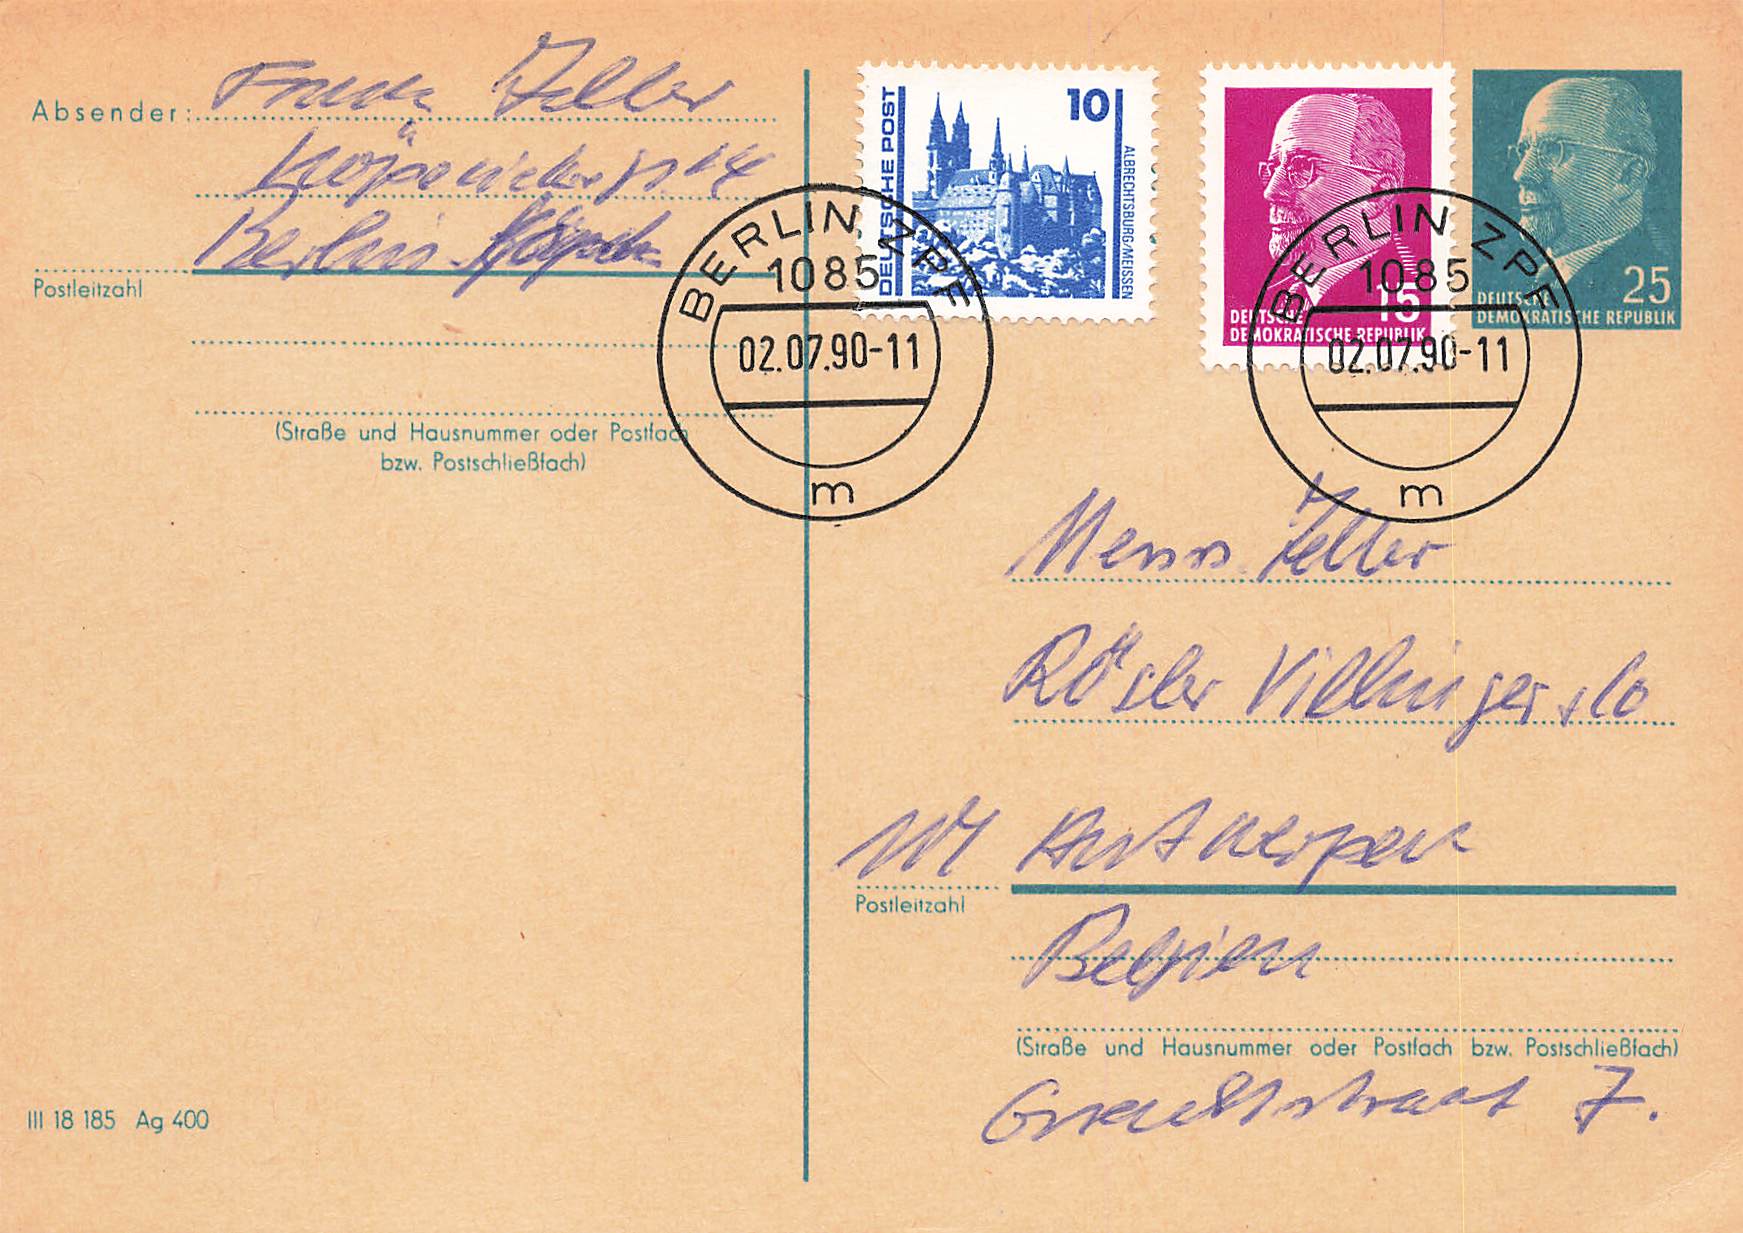 Absender: Frank Zeller
Köpenicker
Berlin
Postleitzahl
(Straße und Hausnummer oder Postfach
bzw. Postschließfach)
III 18 185 Ag 400
DEUTSCHE POST
10
ALBRECHTSBURG/MEISSEN
15
DEUTSCHE
DEMOKRATISCHE REPUBLIK
25
DEUTSCHE
DEMOKRATISCHE REPUBLIK
BERLIN ZPF
1085
02.07.90-11
m
BERLIN ZPF
1085
02.07.90-11
m
Zeller
Rösler Villinger
Antwerpen
Postleitzahl
Belgien
(Straße und Hausnummer oder Postfach bzw. Postschließfach)
7.